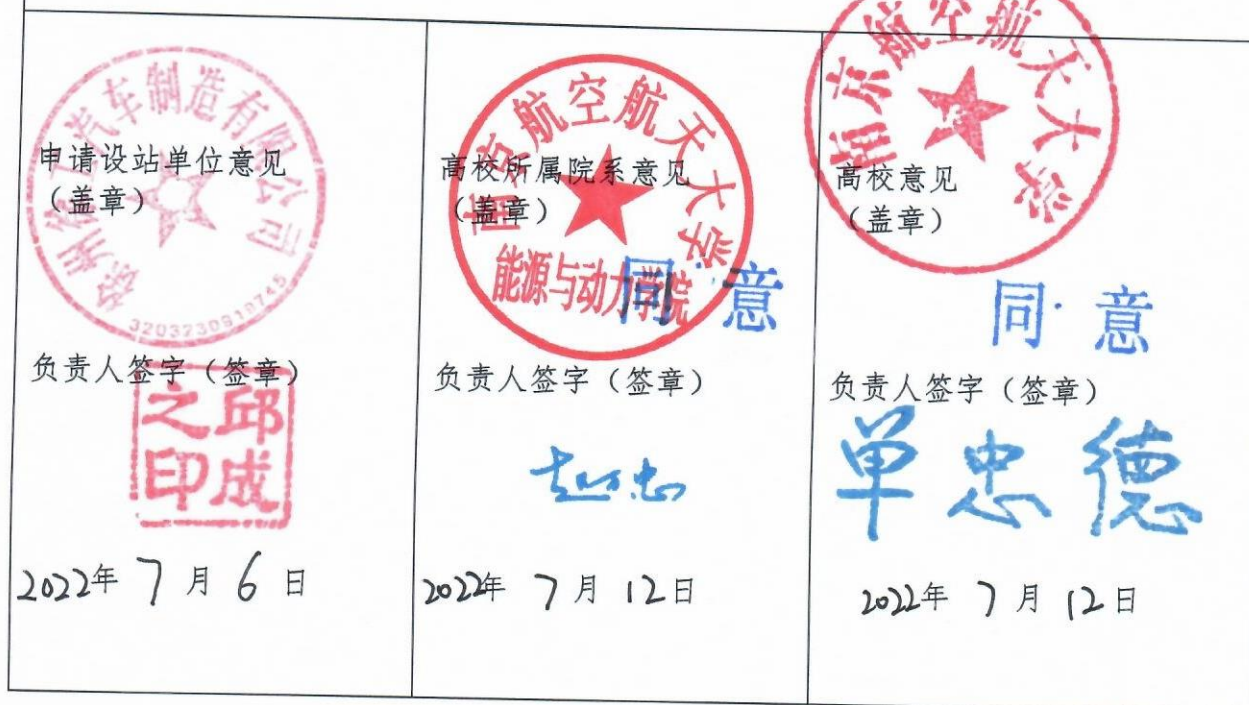 申请设站单位意见
（盖章）
徐州徐工汽车制造有限公司
负责人签字（签章）
邱成之印
2022年 7 月 6 日
高校所属院系意见
（盖章）
南京航空航天大学
能源与动力学院
同意
负责人签字（签章）
2022年 7 月 12日
高校意见
（盖章）
南京航空航天大学
同意
负责人签字（签章）
单忠德
2022年 7 月 12日